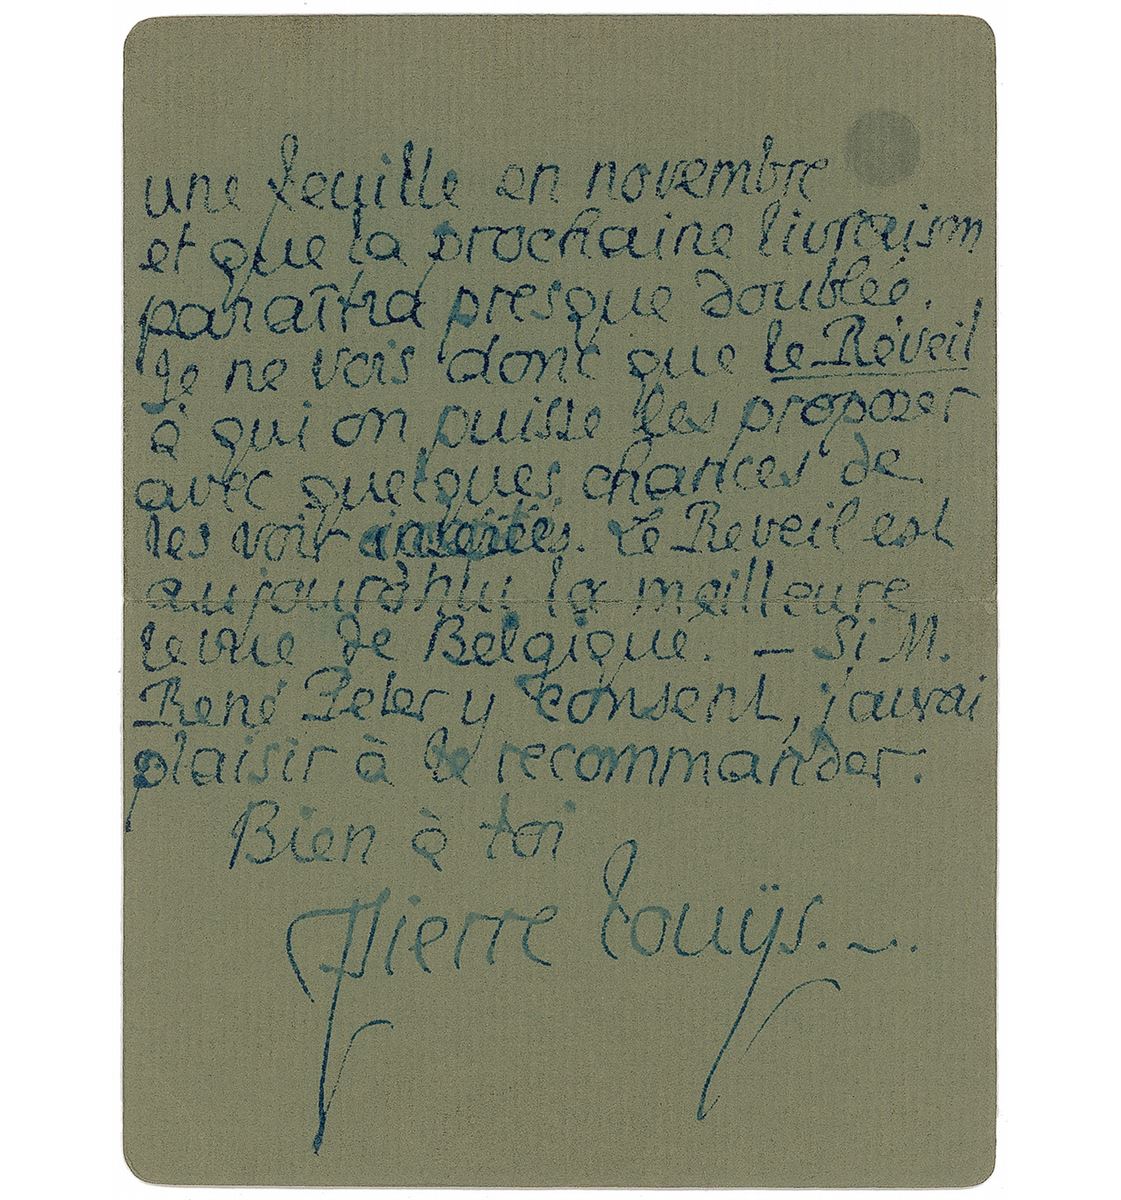 une feuille en novembre
et que la prochaine livraison
paraîtra presque doublée.
Je ne vois donc que le Réveil
à qui on puisse les proposer
avec quelques chances de
les voir insérés. Le Réveil est
aujourd'hui la meilleure
revue de Belgique. — Si M.
René Peter y consent, j'aurai
plaisir à le recommander.
Bien à toi
Pierre Louÿs.